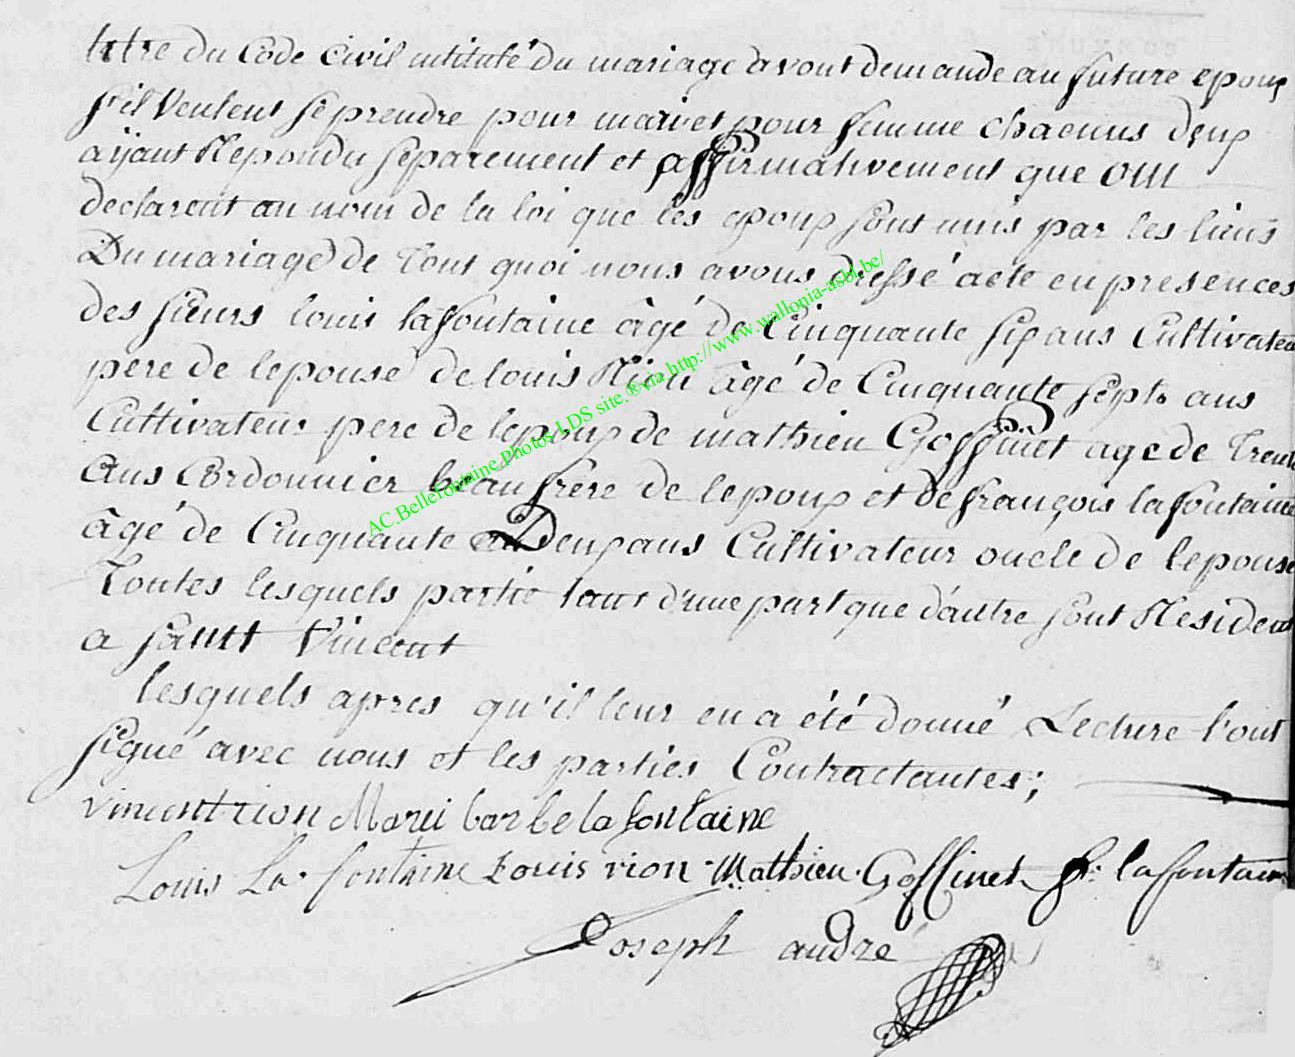 titre du Code Civil intitulé Du mariage avont demande au future epoux
s'il Veulent se prendre pour mari et pour femme chacuns deux
aÿant Repondu séparement et affirmativement que OUI
declarent au nom de la loi que les epoux sont unis par les liens
Du mariage de Tout quoi nous avons dressé acte en presences
des sieurs louis lafontaine âgé de Cinquante six ans Cultivateur
pere de lepouse de louis Rion âgé de Cinquante sept ans
Cultivateur pere de lepoux de mathieu Goffinet age de Trente
ans Cordonnier beau frere de lepoux et de françois lafontaine
âgé de Cinquante Deux ans Cultivateur oncle de lepouse
Toutes lesquels partie tant d'une part que d'autre sont Residens
a saint Vincent
lesquels apres qu'il leur en a été donné Lecture l'ont
signé avec nous et les parties Contractantes;
vincent rion Marii barbe la fontaine
Louis La fontaine Louis rion Mathieu Goffinet f: lafontaine
Joseph andre
AC.Bellefontaine Photos LDS site ®via http://www.wallonia-asbl.be/